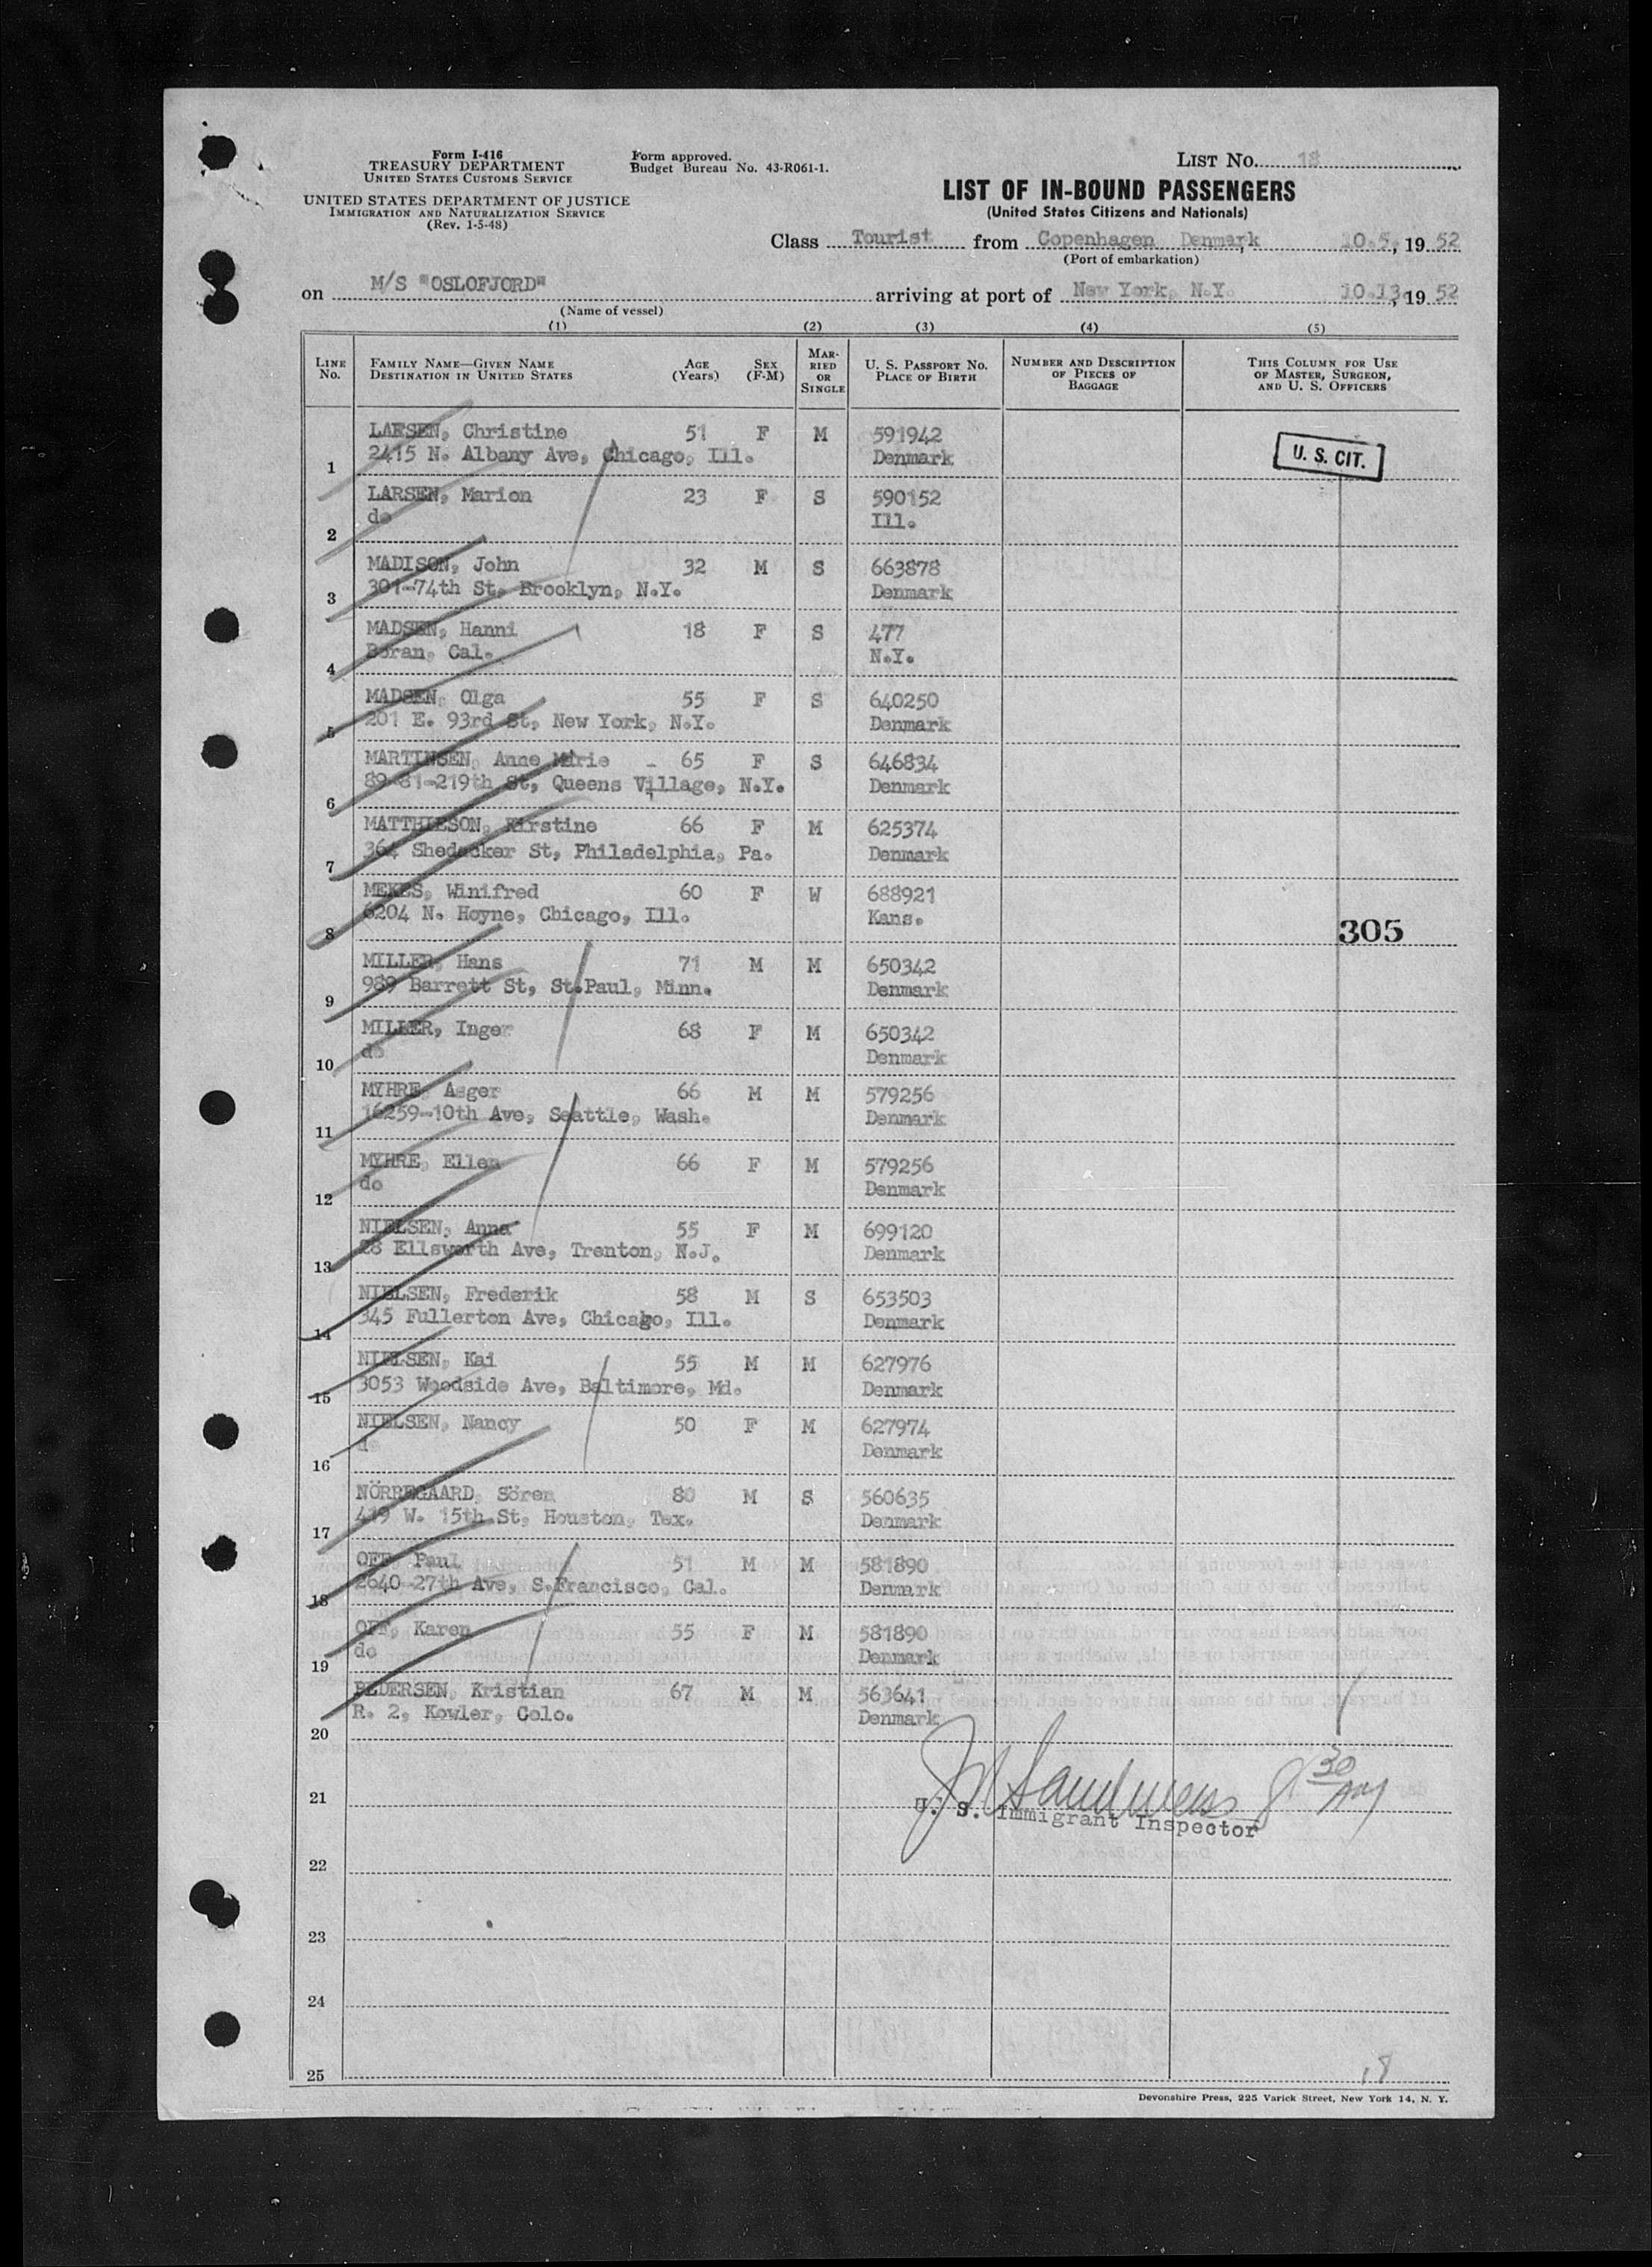 Form I-416
TREASURY DEPARTMENT
UNITED STATES CUSTOMS SERVICE
UNITED STATES DEPARTMENT OF JUSTICE
IMMIGRATION AND NATURALIZATION SERVICE
(Rev. 1-5-48)
Form approved.
Budget Bureau No. 43-R061-1.
LIST No. 18
LIST OF IN-BOUND PASSENGERS
(United States Citizens and Nationals)
Class Tourist from Copenhagen Denmark, 10.5., 19 52
(Port of embarkation)
on M/S "OSLOFJORD" arriving at port of New York, N.Y. 10.13, 19 52
(Name of vessel)
(1) (2) (3) (4) (5)
LINE No. FAMILY NAME—GIVEN NAME DESTINATION IN UNITED STATES AGE (Years) SEX (F-M) MARRIED OR SINGLE U. S. PASSPORT NO. PLACE OF BIRTH NUMBER AND DESCRIPTION OF PIECES OF BAGGAGE THIS COLUMN FOR USE OF MASTER, SURGEON, AND U. S. OFFICERS
LARSEN, Christine 51 F M 591942
1 2415 N. Albany Ave, Chicago, Ill. Denmark
U. S. CIT.
LARSEN, Marion 23 F S 590152
2 do Ill.
MADISON, John 32 M S 663878
3 301-74th St, Brooklyn, N.Y. Denmark
MADSEN, Hanni 18 F S 477
4 Boran, Cal. N.Y.
MADSEN, Olga 55 F S 640250
5 201 E. 93rd St, New York, N.Y. Denmark
MARTINSEN, Anne Marie - 65 F S 646834
6 89-81-219th St, Queens Village, N.Y. Denmark
MATTHIESON, Kirstine 66 F M 625374
7 364 Shedecker St, Philadelphia, Pa. Denmark
MEKES, Winifred 60 F W 688921
8 6204 N. Hoyne, Chicago, Ill. Kans.
305
MILLER, Hans 71 M M 650342
9 989 Barrett St, St.Paul, Minn. Denmark
MILLER, Inger 68 F M 650342
10 do Denmark
MYHRE, Asger 66 M M 579256
11 16259-10th Ave, Seattle, Wash. Denmark
MYHRE, Ellen 66 F M 579256
12 do Denmark
NIELSEN, Anna 55 F M 699120
13 28 Ellsworth Ave, Trenton, N.J. Denmark
NIELSEN, Frederik 58 M S 653503
14 345 Fullerton Ave, Chicago, Ill. Denmark
NIELSEN, Kai 55 M M 627976
15 3053 Woodside Ave, Baltimore, Md. Denmark
NIELSEN, Nancy 50 F M 627974
16 do Denmark
NÖRREGAARD, Sören 80 M S 560635
17 419 W. 15th St, Houston, Tex. Denmark
OFF, Paul 51 M M 581890
18 2640-27th Ave, S.Francisco, Cal. Denmark
OFF, Karen 55 F M 581890
19 do Denmark
PEDERSEN, Kristian 67 M M 563641
20 R. 2, Kowler, Colo. Denmark
21 U. S. Immigrant Inspector
22
23
24
25
18
Devonshire Press, 225 Varick Street, New York 14, N. Y.